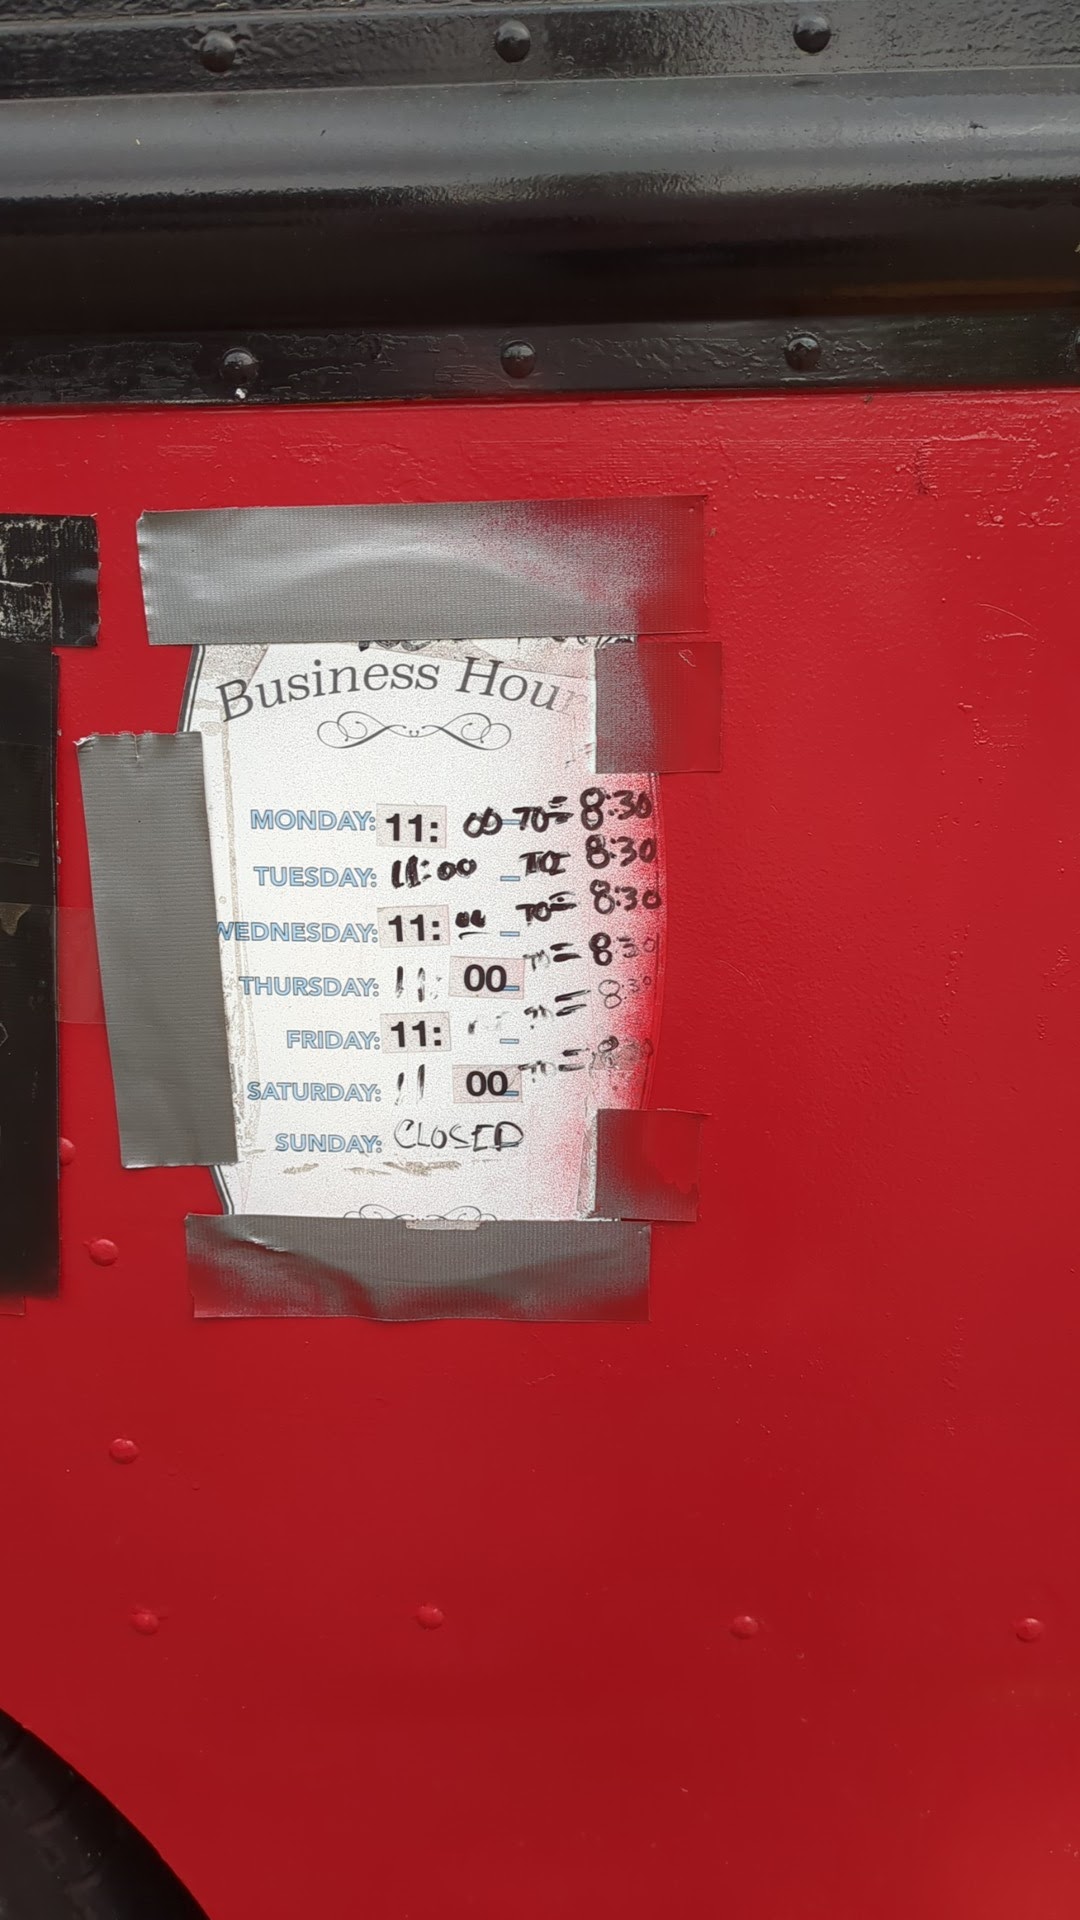 Business Hour
MONDAY: 11: 00 - TO= 8:30
TUESDAY: 11:00 - TO 8:30
WEDNESDAY: 11: 00 - TO= 8:30
THURSDAY: 11: 00 - = 8:30
FRIDAY: 11: - = 8:30
SATURDAY: 11 00 - =
SUNDAY: CLOSED